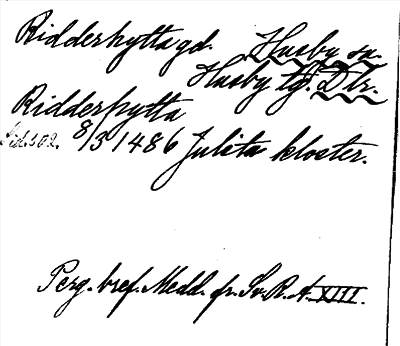 Ridderhytta gd. Husby sn.
Husby tg. Dlr.
Ridderhytta
Sid. 502. 8/3 1486 Julita kloster.
Perg. bref. Medd. fr. Sv. R. A. XIII.